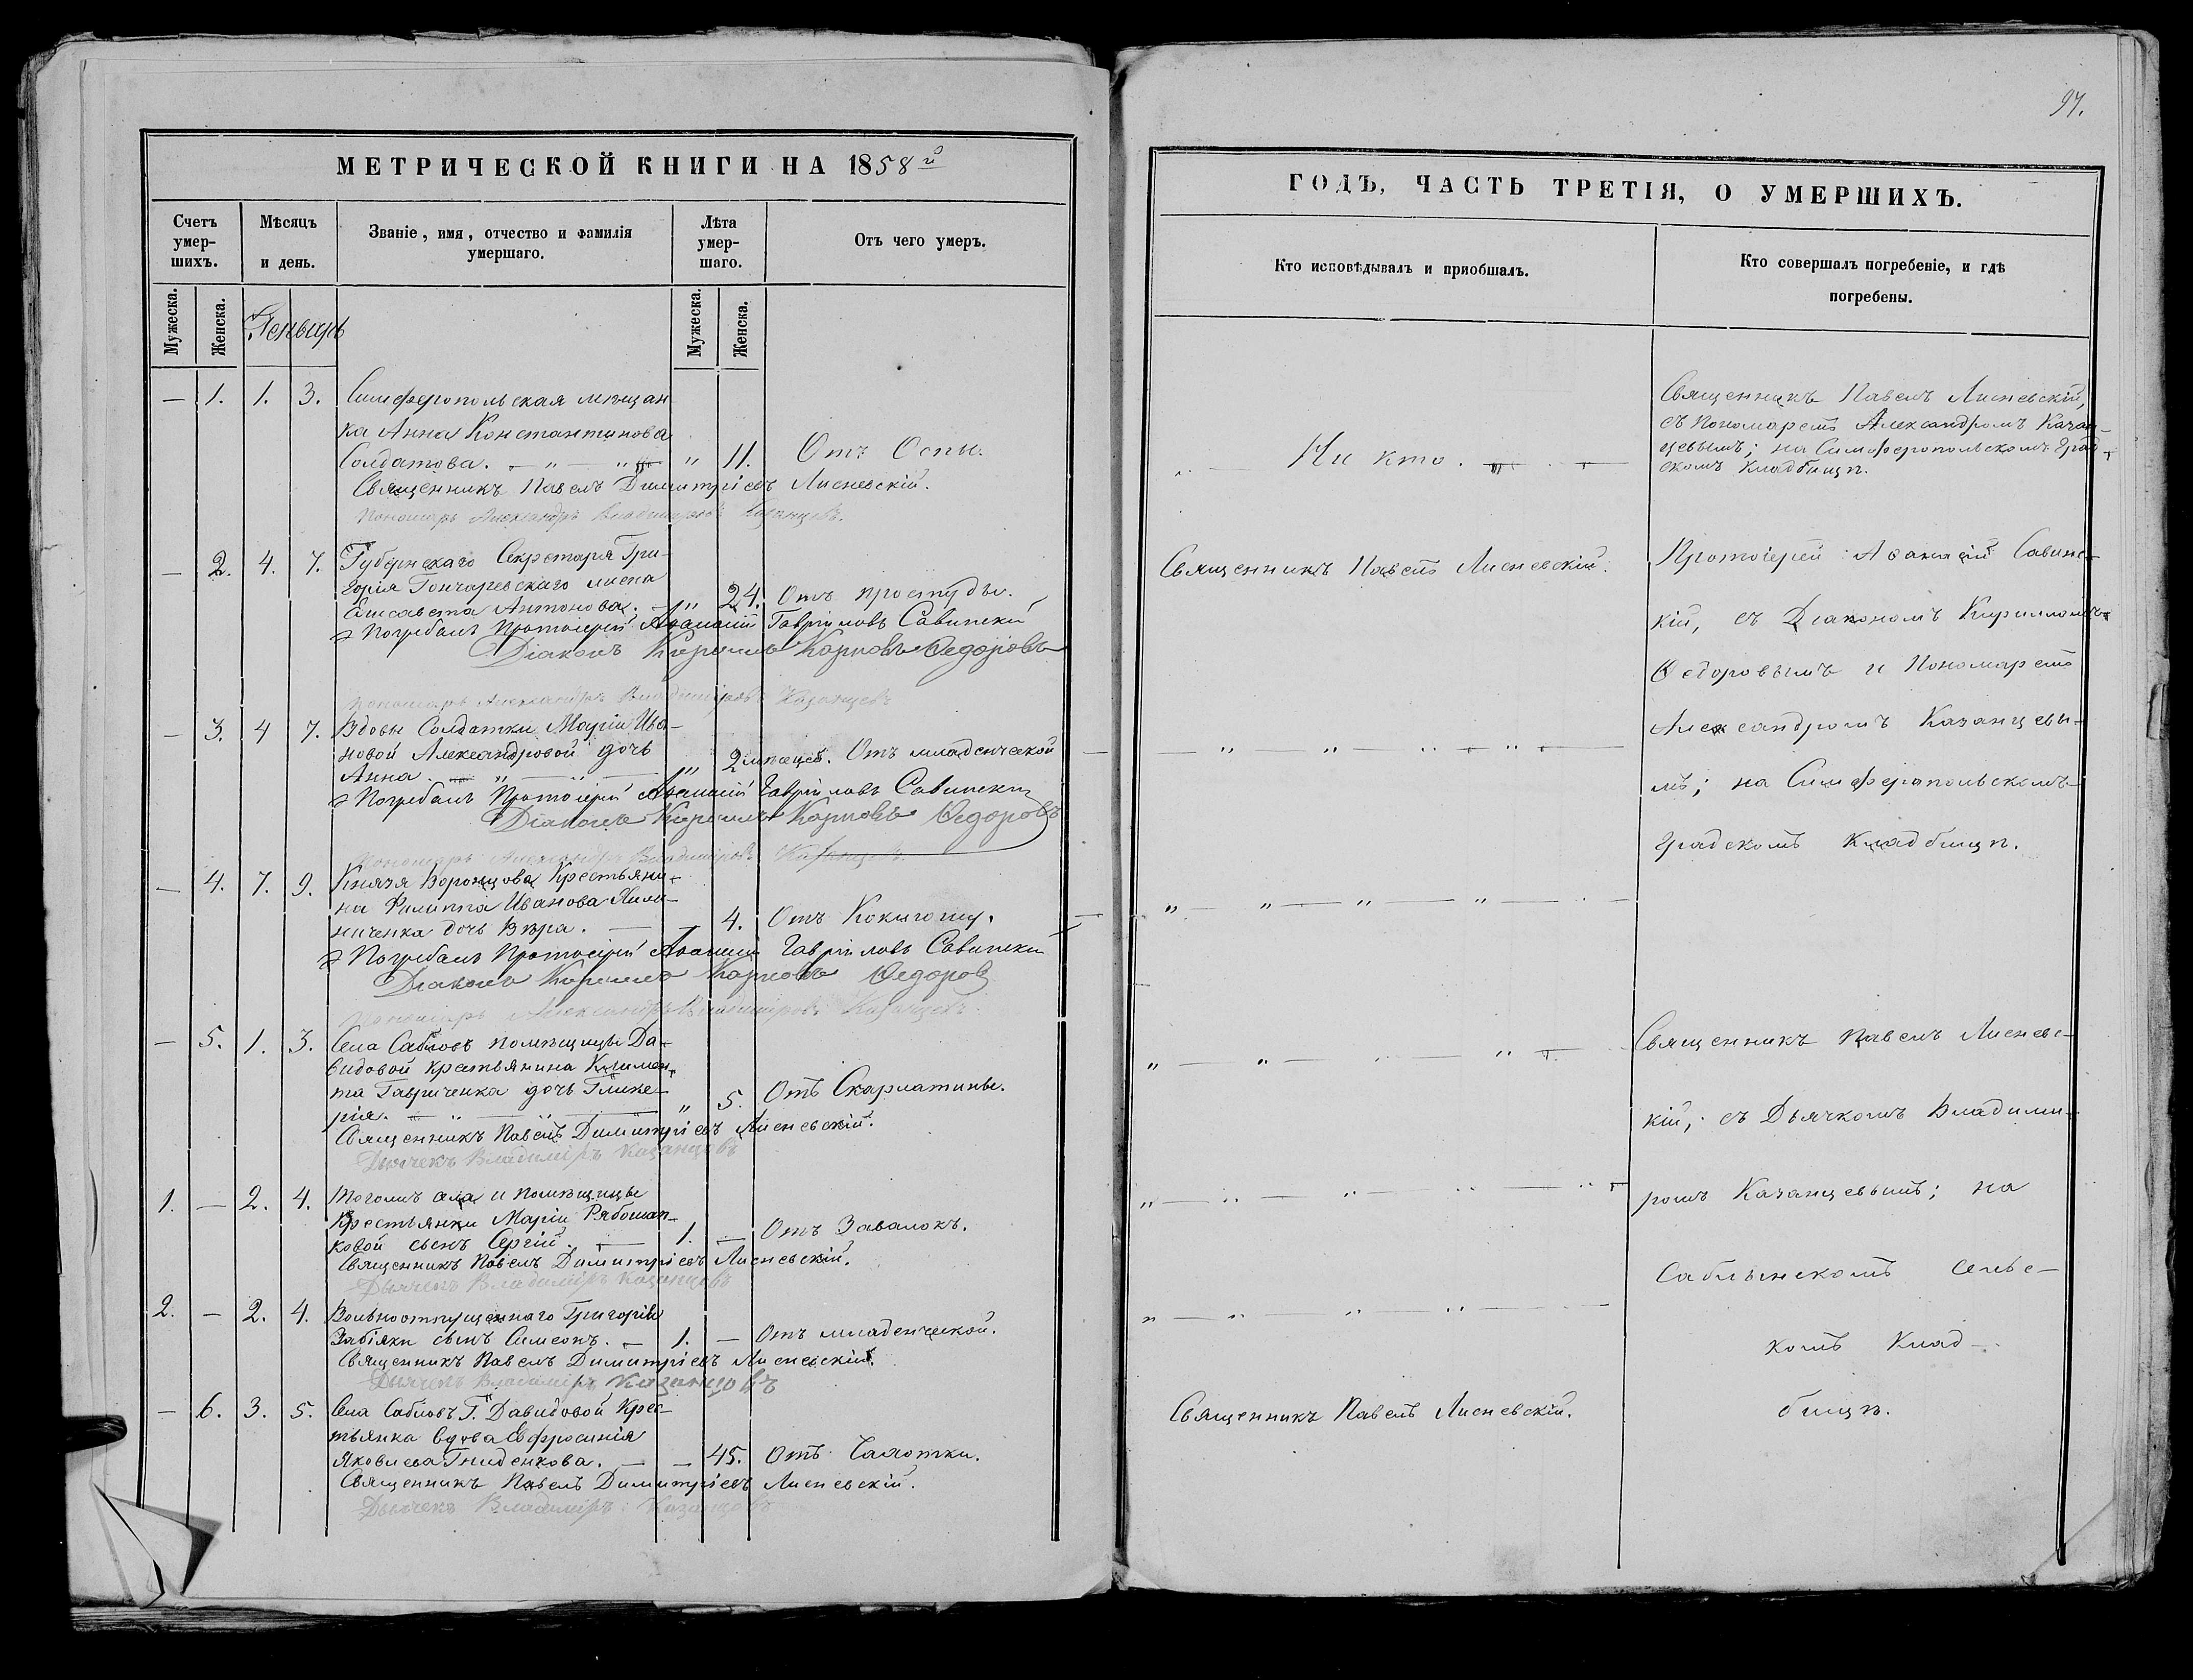 МЕТРИЧЕСКОЙ КНИГИ НА 1858й
Счетъ умершихъ.
Мѣсяцъ и день.
Званіе, имя, отчество и фамилія умершаго.
Лѣта умершаго.
Отъ чего умеръ.
Мужеска.
Женска.
Генварь
Мужеска.
Женска.
— 1. 1. 3. Симферопольская мѣщан
ка Анна Константинова
Солдатова. — " — " — " 11. Отъ Оспы.
Священникъ Павелъ Димитріевъ Лисневскій.
Пономарь Александръ Владиміровъ Казанцевъ.
— 2. 4. 7. Губернскаго Секретаря Гри-
горія Гончаревскаго жена
Елисавета Антонова. — " 24. Отъ простуды.
Погребалъ Протоіерей Аѳанасій Гавріиловъ Савинскій
Діаконъ Кириллъ Карповъ Ѳедоровъ
Пономарь Александръ Владиміровъ Казанцевъ
— 3. 4 7. Вдовы Солдатки Маріи Ива-
новой Александровой дочь
Анна. — " — " — " 2 мѣсяцев. Отъ младенческой
Погребалъ Протоіерей Аѳанасій Гавріиловъ Савинскій
Діаконъ Кириллъ Карповъ Ѳедоровъ
Пономарь Александръ Владиміровъ Казанцевъ
— 4. 7. 9. Князя Воронцова Крестьяни-
на Филиппа Иванова
дочь Вѣра. — — 4. Отъ
Погребалъ Протоіерей Аѳанасій Гавріиловъ Савинскій
Діаконъ Кириллъ Карповъ Ѳедоровъ
Пономарь Александръ Владиміровъ Казанцевъ
— 5. 1. 3. Села Сабловъ помѣщицы Да-
видовой крестьянина Климен-
та Гавриченка дочь Глике-
рія. — " — " — " 5. Отъ Скарлатины.
Священникъ Павелъ Димитріевъ Лисневскій.
Дьячекъ Владиміръ Казанцовъ
1. — 2. 4. Тогожъ села и помѣщицы
Крестьянки Маріи Рябошап-
ковой сынъ Сергій. — 1. — Отъ Завалокъ.
Священникъ Павелъ Димитріевъ Лисневскій.
Дьячекъ Владиміръ Казанцовъ
2. — 2. 4. Вольноотпущеннаго Григорія
Забіяки сынъ Симеонъ. — 1. — Отъ младенческой.
Священникъ Павелъ Димитріевъ Лисневскій.
Дьячекъ Владиміръ Казанцовъ
— 6. 3. 5. Села Сабловъ Г. Давидовой Крес-
тьянка вдова Евфросинія
Яковлева Гниденкова. — — 45. Отъ Чахотки.
Священникъ Павелъ Димитріевъ Лисневскій.
Дьячекъ Владиміръ Казанцовъ
97.
ГОДЪ, ЧАСТЬ ТРЕТІЯ, О УМЕРШИХЪ.
Кто исповѣдывалъ и приобшалъ.
Кто совершалъ погребеніе, и гдѣ
погребены.
Ни кто.
Священникъ Павелъ Лисневскій,
съ Пономаремъ Александромъ Казан-
цевымъ; на Симферопольскомъ град-
скомъ кладбищѣ.
Священникъ Павелъ Лисневскій.
Протоіерей Аѳанасій Савинс-
кій, съ Діакономъ Кирилломъ
Ѳедоровымъ и Пономаремъ
Александромъ Казанцевы-
мъ; на Симферопольскомъ
градскомъ кладбищѣ.
Священникъ Павелъ Лисневс-
кій, съ Дьячкомъ Владими-
ромъ Казанцевымъ; на
Саблынскомъ Сельс-
комъ Клад-
бищѣ.
Священникъ Павелъ Лисневскій.